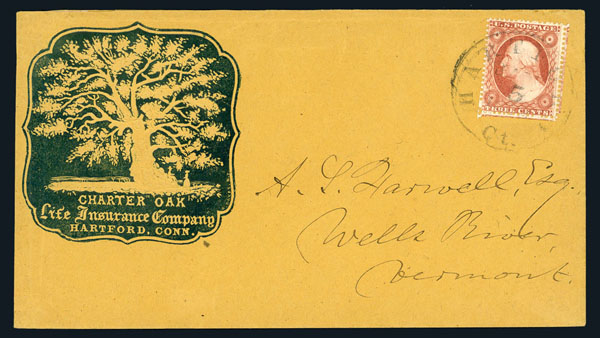 CHARTER OAK
Life Insurance Company
HARTFORD, CONN.
U.S. POSTAGE
THREE CENTS
Ct.
A. S. Harwell, Esq.,
Wells River,
Vermont.